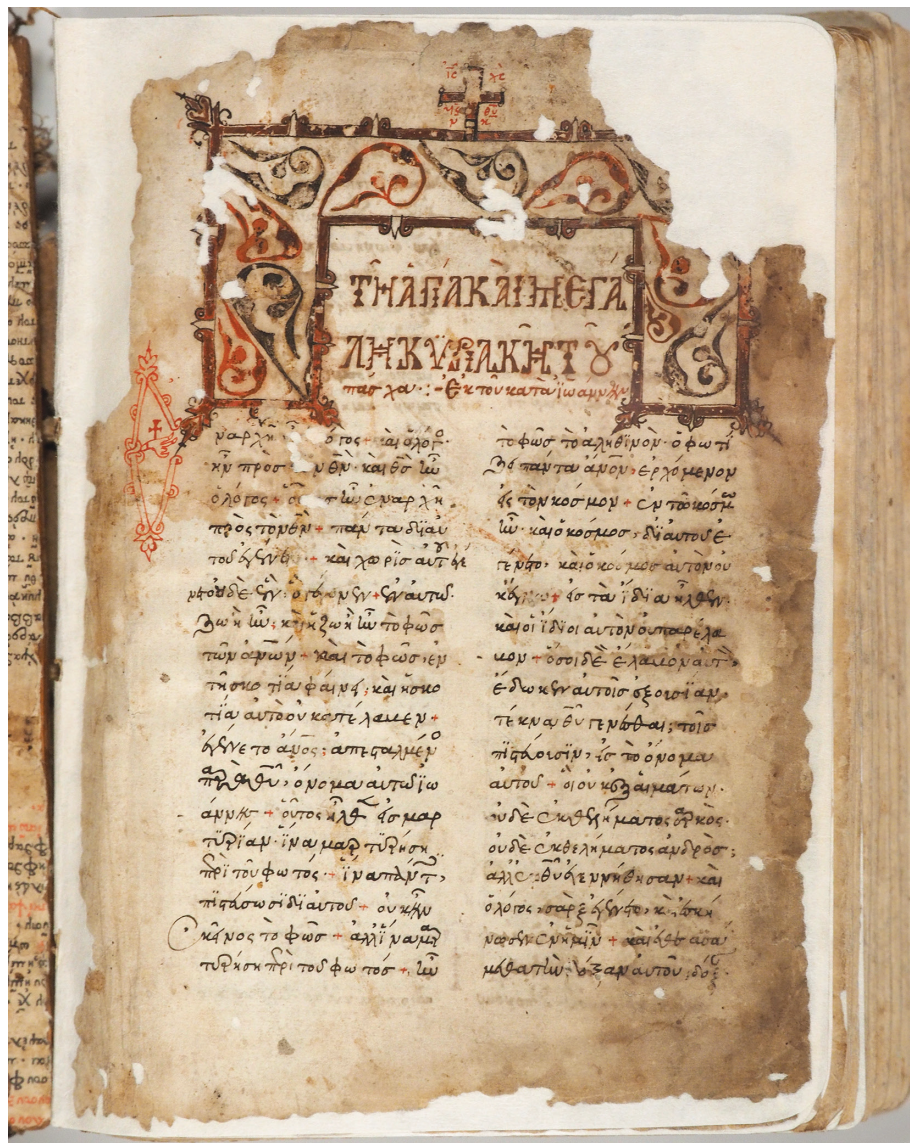 ΙC ΧC
ΤΗ ΑΓΙΑ ΚΑΙ ΜΕΓΑ
ΛΗ ΚΥΡΙΑΚΗ ΤȢ
πάσχα · : - Ἐκ τοῦ κατὰ ϊωάννην
ναρχῆ λόγος + καὶ ὁλόγο·
ἦν προσ θν· καὶ θσ ἦν
ὁλόγος + ἦν ἐναρχῆ
πρὸς τὸν θν + πάντα δϊ αυ
τοῦ ἐγένετο + καὶ χωρὶσ αὐτοῦ ἐγέ
νετο οὐδὲ ἓν· ὃ γέγονεν + ἐν αὐτῶ
ζωὴ ἦν· κ ἡ ζωὴ ἦν τὸ φῶσ
τῶν ανων + καὶ τὸ φῶσ, ἐν
τῆ σκοτία φαίνει; καὶ ἡ σκο
τία αὐτὸ οὐ κατέλαβεν +
ἐγένετο ανος; ἀπεσταλμένο
παρὰ θυ, ὄνομα αυτῶ ϊω
άννης + οὗτος ἦλθεν εἰσ μαρ
τυρίαν· ἵνα μαρτυρήση
πρὶ τοῦ φωτός + ἵνα πάντ,
πιστεύσωσι δϊ αυτοῦ + οὐκ ἦν
ἐκεῖνος τὸ φῶσ + ἀλλ ἵνα μαρ
τυρήση πρὶ τοῦ φωτόσ +, ἦν
τὸ φῶσ τὸ ἀληθϊνόν· ὃ φωτί
ζει πάντα ανον, ἐρχόμενον
εἰς τὸν κόσμον + ἐν τῶ κόσμω
ἦν· καὶ ὁ κόσμοσ, δϊ αυτοῦ ἐ
γένετο, καὶ ὁ κόσμοσ αὐτὸν οὐ
κ ἔγνω + εἰσ τὰ ἴδϊα ἦλθεν·
καὶ οἱ ἴδϊοι αυτὸν οὐ παρέλα
βον + ὅσοι δὲ ἔλαβον αὐτὸ,
ἔδωκεν αυτοῖσ ἐξουσίαν,
τέκνα θυ γενέσθαι; τοῖσ
πιστεύουσϊν, εἰσ τὸ ὄνομα
αυτοῦ + οἳ οὐκ ἐξ αἱμάτων·
οὐδὲ ἐκ θελήματος σαρκὸς·
οὐδὲ ἐκ θελήματος ἀνδρός;
ἀλλ ἐκ θυ ἐγεννήθησαν + καὶ
ὁλόγος, σὰρξ ἐγένετο, κ ἐσκή
νωσεν ἐν ἡμῖν + καὶ ἐθεασά
μεθα τὴν δόξαν αυτοῦ, δόξ·